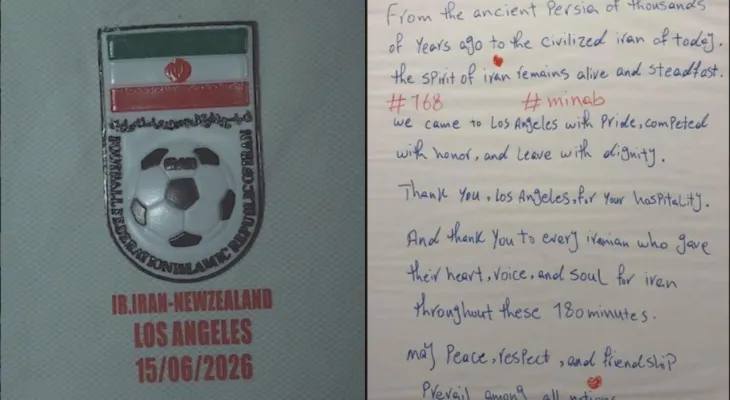 IRAN
FOOTBALL FEDERATION ISLAMIC REPUBLIC OF IRAN
IR.IRAN-NEWZEALAND
LOS ANGELES
15/06/2026
From the ancient Persia of thousands
of years ago to the civilized iran of today.
the spirit of iran remains alive and steadfast.
#168 #minab
we came to Los Angeles with Pride, competed
with honor, and leave with dignity.
Thank you, Los Angeles, for your hospitality.
And thank you to every iranian who gave
their heart, voice, and soul for iran
throughout these 180 minutes.
may Peace, respect, and friendship
Prevail among all nations